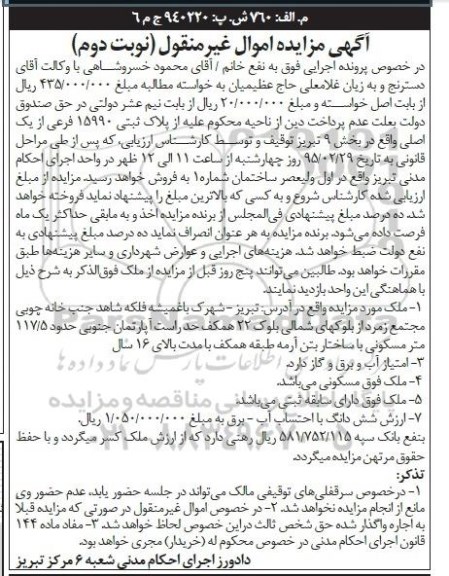 م. الف: ۷۶۰ ش. پ: ۹۴۰۲۲۰ ج م ۶
آگهی مزایده اموال غیرمنقول (نوبت دوم)
در خصوص پرونده اجرایی فوق به نفع خانم / آقای محمود خسروشـاهی با وکالت آقای
دسترنج و به زیان غلامعلی حاج عظیمیان به خواسته مطالبه مبلغ ۴۳۵/۰۰۰/۰۰۰ ریال
از بابت اصل خواسـته و مبلغ ۲۰/۰۰۰/۰۰۰ ریال از بابت نیم عشر دولتی در حق صندوق
دولت بعلت عدم پرداخت دین از ناحیه محکوم علیه از پلاک ثبتی ۱۵۹۹۰ فرعی از یک
اصلی واقع در بخش ۹ تبریز توقیف و توسـط کارشـناس ارزیابی، که پس از طی مراحل
قانونی به تاریخ ۹۵/۰۲/۲۹ روز چهارشنبه از ساعت ۱۱ الی ۱۲ ظهر در واحد اجرای احکام
مدنی تبریز واقع در اول ولیعصر ساختمان شماره۱ به فروش خواهد رسید. مزایده از مبلغ
ارزیابی شده کارشناس شروع و به کسی که بالاترین مبلغ را پیشنهاد نماید فروخته خواهد
شد ده درصد مبلغ پیشنهادی فی‌المجلس از برنده مزایده اخذ و به مابقی حداکثر یک ماه
فرصت داده می‌شود. برنده مزایده به هر عنوان انصراف نماید ده درصد مبلغ پیشنهادی به
نفع دولت ضبط خواهد شد. هزینه‌های اجرایی و عوارض شهرداری و سایر هزینه‌ها طبق
مقررات خواهد بود. طالبین می‌توانند پنج روز قبل از مزایده از ملک فوق‌الذکر به شرح ذیل
با هماهنگی این واحد بازدید نمایند.
۱- ملک مورد مزایده واقع در آدرس: تبریز - شهرک باغمیشه فلکه شاهد جنب خانه چوبی
مجتمع زمرد از بلوکهای شمالی بلوک ۲۲ همکف حد راست آپارتمان جنوبی حدود ۱۱۷/۵
متر مسکونی با ساختار بتن آرمه طبقه همکف با مدت بالای ۱۶ سال
۳- امتیاز آب و برق و گاز دارد.
۴- ملک فوق مسکونی می‌باشد.
۵- ملک فوق دارای سابقه ثبتی می‌باشد.
۷- ارزش شش دانگ با احتساب آب - برق به مبلغ ۱/۰۵۰/۰۰۰/۰۰۰ ریال.
بنفع بانک سپه ۵۸۱/۷۵۲/۱۱۵ ریال رهنی دارد که از ارزش ملک کسر میگردد و با حفظ
حقوق مرتهن مزایده میگردد.
تذکر:
۱- درخصوص سرقفلی‌های توقیفی مالک می‌تواند در جلسه حضور یابد، عدم حضور وی
مانع از انجام مزایده نخواهد شد. ۲- در خصوص اموال غیرمنقول در صورتی که مزایده قبلا
به اجاره واگذار شده حق شخص ثالث دراین خصوص لحاظ خواهد شد. ۳- مفاد ماده ۱۴۴
قانون اجرای احکام مدنی در خصوص محکوم له (خریدار) مجری خواهد بود.
دادورز اجرای احکام مدنی شعبه ۶ مرکز تبریز